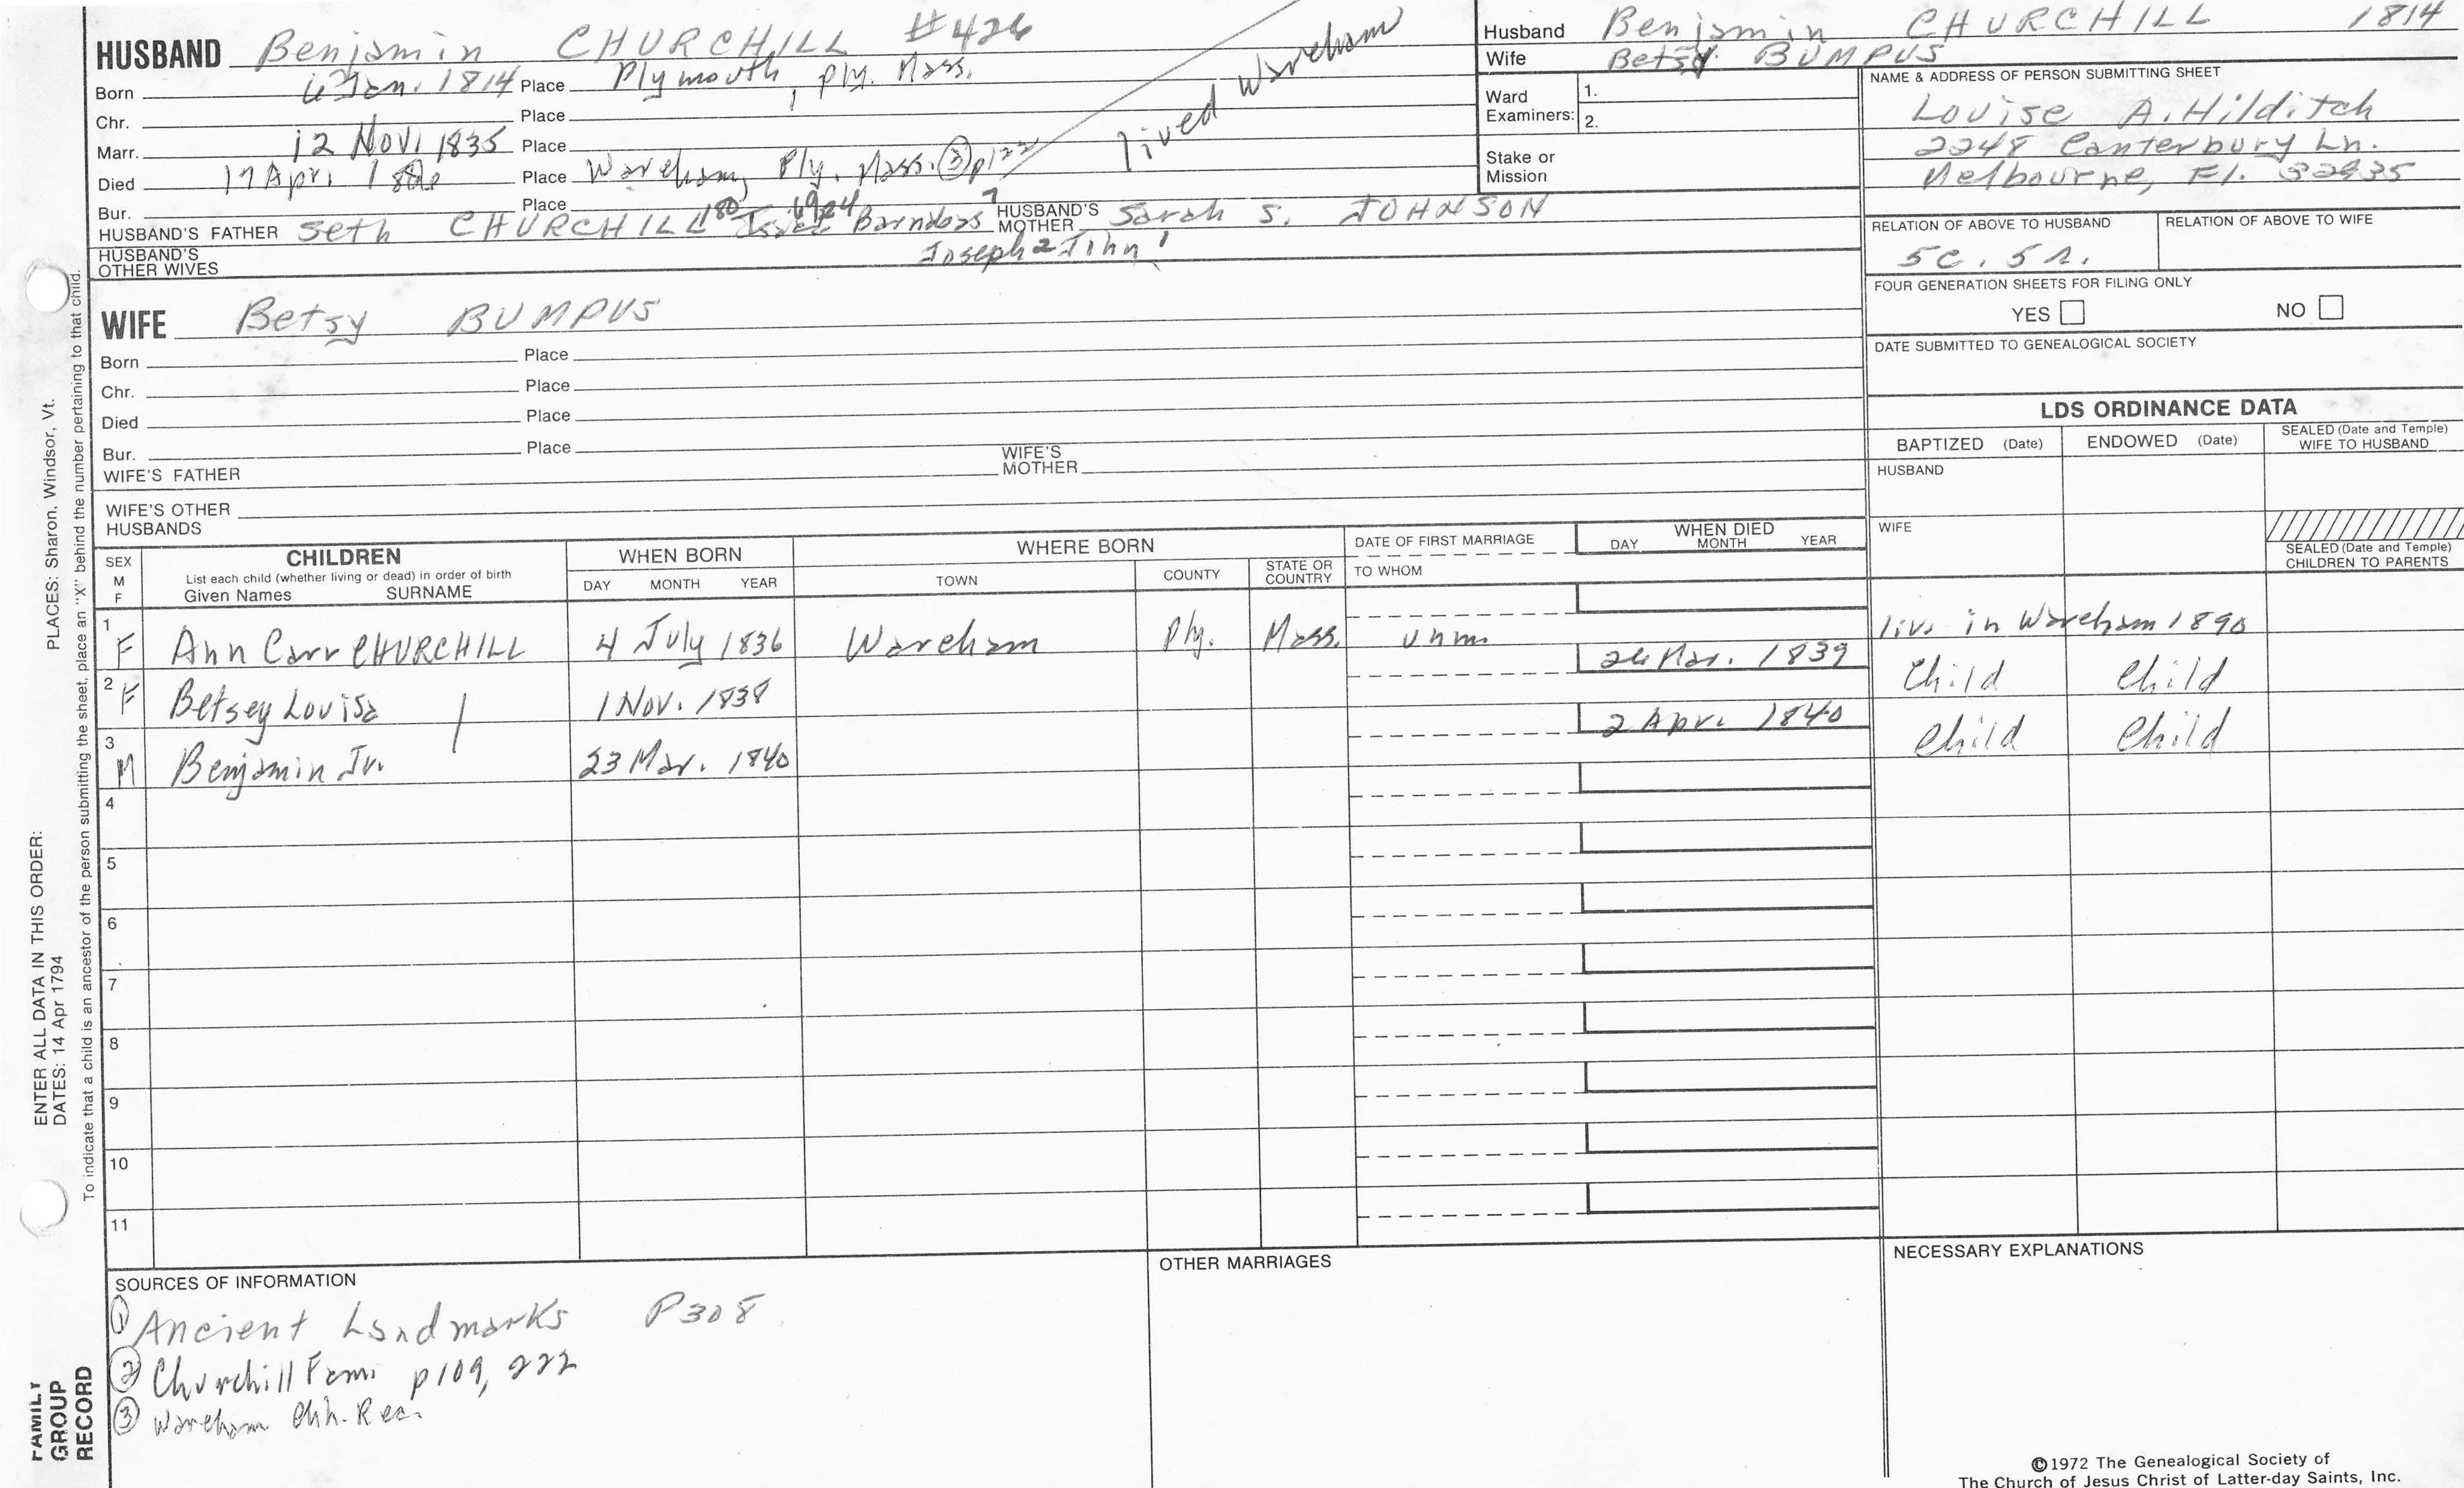 HUSBAND Benjamin CHURCHILL #426
Born 6 Jan. 1814 Place Plymouth, Ply. Mass.
Chr. Place
Marr. 12 Nov. 1835 Place
Died 17 Apr. Place Wareham, Ply. Mass. ③ p122
lived Wareham
Bur. Place
HUSBAND'S FATHER Seth CHURCHILL Barnabas HUSBAND'S MOTHER Sarah S. JOHNSON
Joseph 2 John 1
HUSBAND'S OTHER WIVES
WIFE Betsy BUMPUS
Born Place
Chr. Place
Died Place
Bur. Place
WIFE'S FATHER WIFE'S MOTHER
WIFE'S OTHER HUSBANDS
Husband Benjamin CHURCHILL 1814
Wife Betsy BUMPUS
Ward Examiners: 1.
2.
Stake or Mission
NAME & ADDRESS OF PERSON SUBMITTING SHEET
Louise A. Hilditch
2248 Canterbury Ln.
Melbourne, Fl. 32935
RELATION OF ABOVE TO HUSBAND RELATION OF ABOVE TO WIFE
5c. 5r.
FOUR GENERATION SHEETS FOR FILING ONLY
YES NO
DATE SUBMITTED TO GENEALOGICAL SOCIETY
LDS ORDINANCE DATA
BAPTIZED (Date) ENDOWED (Date) SEALED (Date and Temple) WIFE TO HUSBAND
HUSBAND
WIFE
SEALED (Date and Temple) CHILDREN TO PARENTS
SEX M F CHILDREN WHEN BORN WHERE BORN DATE OF FIRST MARRIAGE WHEN DIED
List each child (whether living or dead) in order of birth
Given Names SURNAME DAY MONTH YEAR TOWN COUNTY STATE OR COUNTRY TO WHOM DAY MONTH YEAR
1 F Ann Carr CHURCHILL 4 July 1836 Wareham Ply. Mass. unm. live in Wareham 1890
2 F Betsey Louisa 1 Nov. 1838 26 Mar. 1839 Child Child
3 M Benjamin Jr. 23 Mar. 1840 2 Apr. 1840 Child Child
4
5
6
7
8
9
10
11
SOURCES OF INFORMATION
① Ancient Landmarks P308
② Churchill Fam. p109, 222
③ Wareham Chh. Rec.
OTHER MARRIAGES
NECESSARY EXPLANATIONS
©1972 The Genealogical Society of
The Church of Jesus Christ of Latter-day Saints, Inc.
ENTER ALL DATA IN THIS ORDER:
DATES: 14 Apr 1794 PLACES: Sharon, Windsor, Vt.
To indicate that a child is an ancestor of the person submitting the sheet, place an "X" behind the number pertaining to that child.
FAMILY
GROUP
RECORD